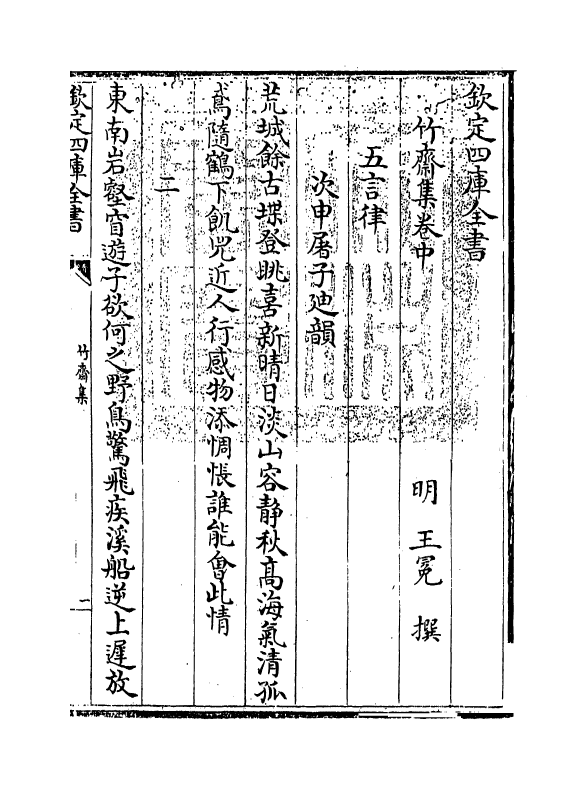 欽定四庫全書
竹齋集卷中
明 王冕 撰
五言律
次申屠子廸韻
荒城餘古堞登眺喜新晴日淡山容静秋髙海氣清孤
鳶隨鶴下飢兕近人行感物添惆悵誰能會此情
二
東南岩壑窅遊子欲何之野鳥驚飛疾溪船逆上遲放
欽定四庫全書
竹齋集
一